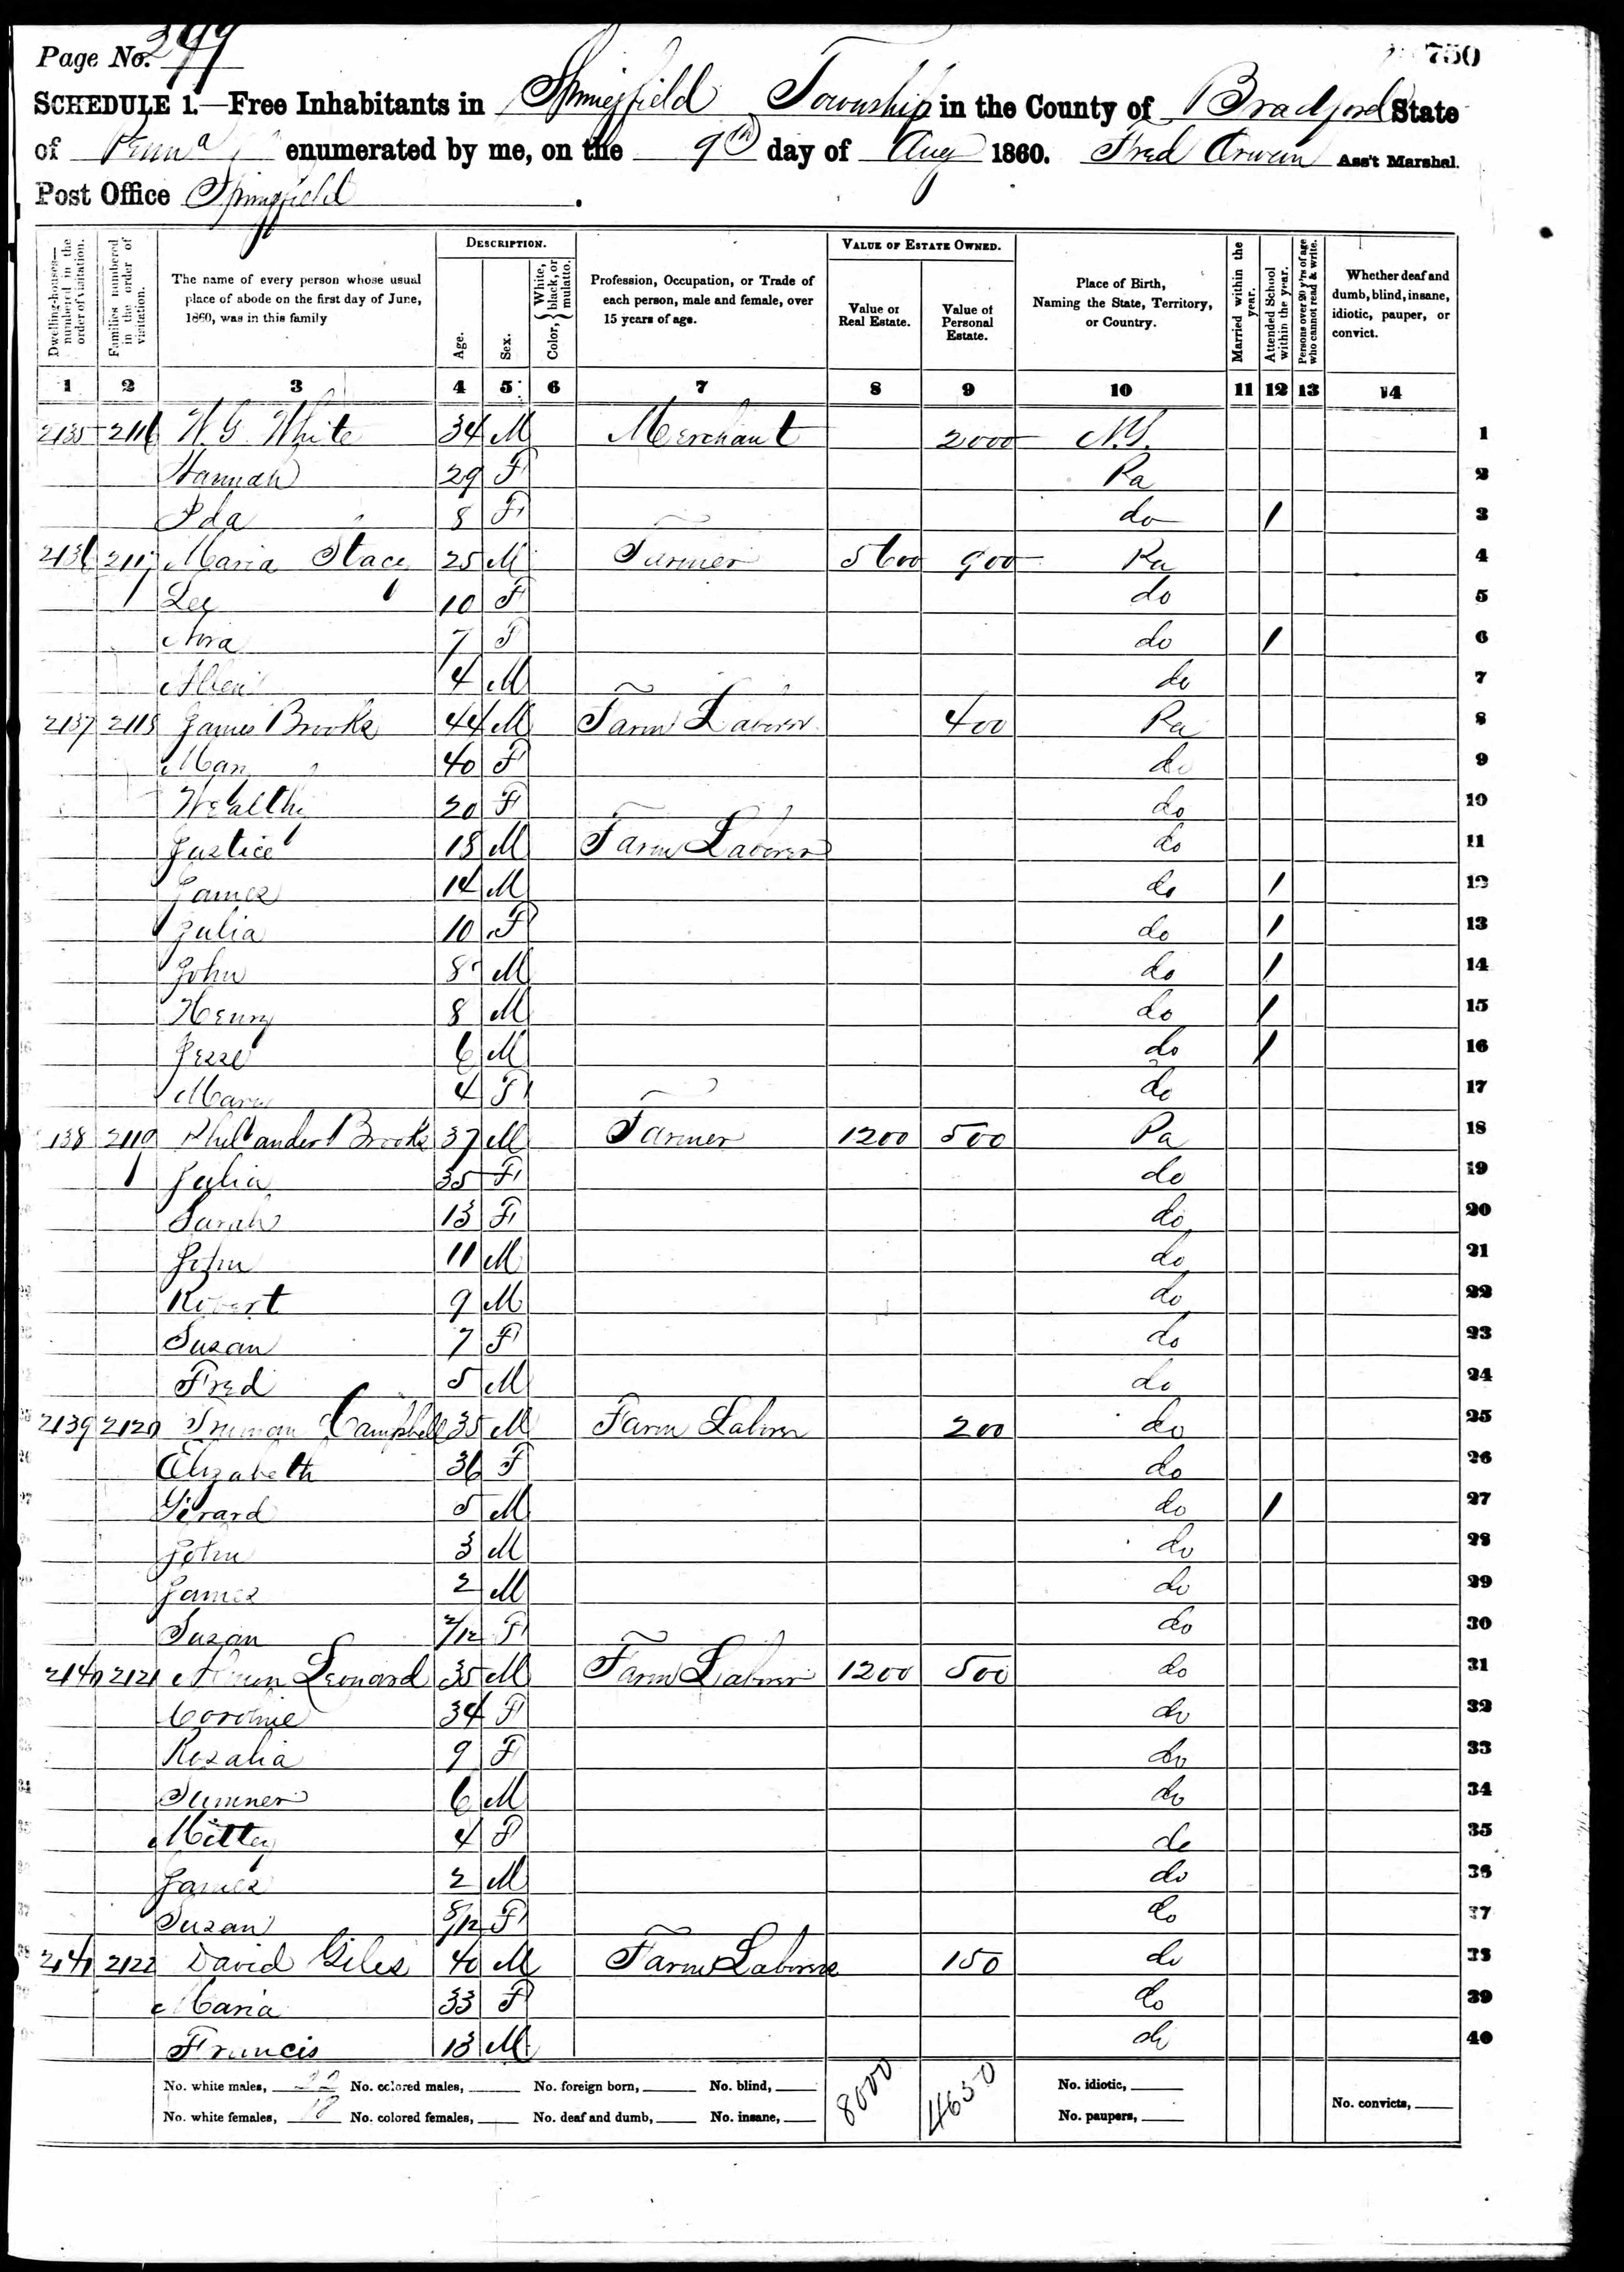 Page No. 299
750
SCHEDULE 1.—Free Inhabitants in Springfield Township in the County of Bradford State
of Penna enumerated by me, on the 9th day of Aug 1860. Fred Orwan Ass't Marshal.
Post Office Springfield.
Dwelling-houses—numbered in the order of visitation.
Families numbered in the order of visitation.
The name of every person whose usual place of abode on the first day of June, 1860, was in this family
DESCRIPTION.
Age.
Sex.
Color, { White, black, or mulatto.
Profession, Occupation, or Trade of each person, male and female, over 15 years of age.
VALUE OF ESTATE OWNED.
Value of Real Estate.
Value of Personal Estate.
Place of Birth, Naming the State, Territory, or Country.
Married within the year.
Attended School within the year.
Persons over 20 y'rs of age who cannot read & write.
Whether deaf and dumb, blind, insane, idiotic, pauper, or convict.
1 2 3 4 5 6 7 8 9 10 11 12 13 14
2135 2116 W. G. White 34 M Merchant 2000 N.Y. 1
Hannah 29 F Pa 2
Ida 8 F do / 3
2136 2117 Maria Stacy 25 M Farmer 5600 900 Pa 4
Lee 10 F do 5
Nora 7 F do / 6
4 M do 7
2137 2118 James Brooks 44 M Farm Laborer 400 Pa 8
Mary 40 F do 9
Wealthy 20 F do 10
Justice 18 M Farm Laborer do 11
James 14 M do / 12
Julia 10 F do / 13
John 8 M do / 14
Henry 8 M do / 15
Jesse 6 M do / 16
Mary 4 F do 17
138 2119 Philander Brooks 37 M Farmer 1200 500 Pa 18
Julia 35 F do 19
Sarah 13 F do 20
John 11 M do 21
Robert 9 M do 22
Susan 7 F do 23
Fred 5 M do 24
2139 2120 Truman Campbell 35 M Farm Laborer 200 do 25
Elizabeth 36 F do 26
Gerard 5 M do / 27
John 3 M do 28
James 2 M do 29
Susan 2/12 F do 30
2140 2121 Leonard 35 M Farm Laborer 1200 500 do 31
Caroline 34 F do 32
Rosalia 9 F do 33
Sumner 6 M do 34
Mittey 4 F do 35
James 2 M do 36
Susan 8/12 F do 37
2141 2122 David Giles 40 M Farm Laborer 150 do 38
Maria 33 F do 39
Francis 13 M do 40
No. white males, 22 No. colored males, No. foreign born, No. blind, 8000 4650 No. idiotic,
No. white females, 18 No. colored females, No. deaf and dumb, No. insane, No. paupers, No. convicts,